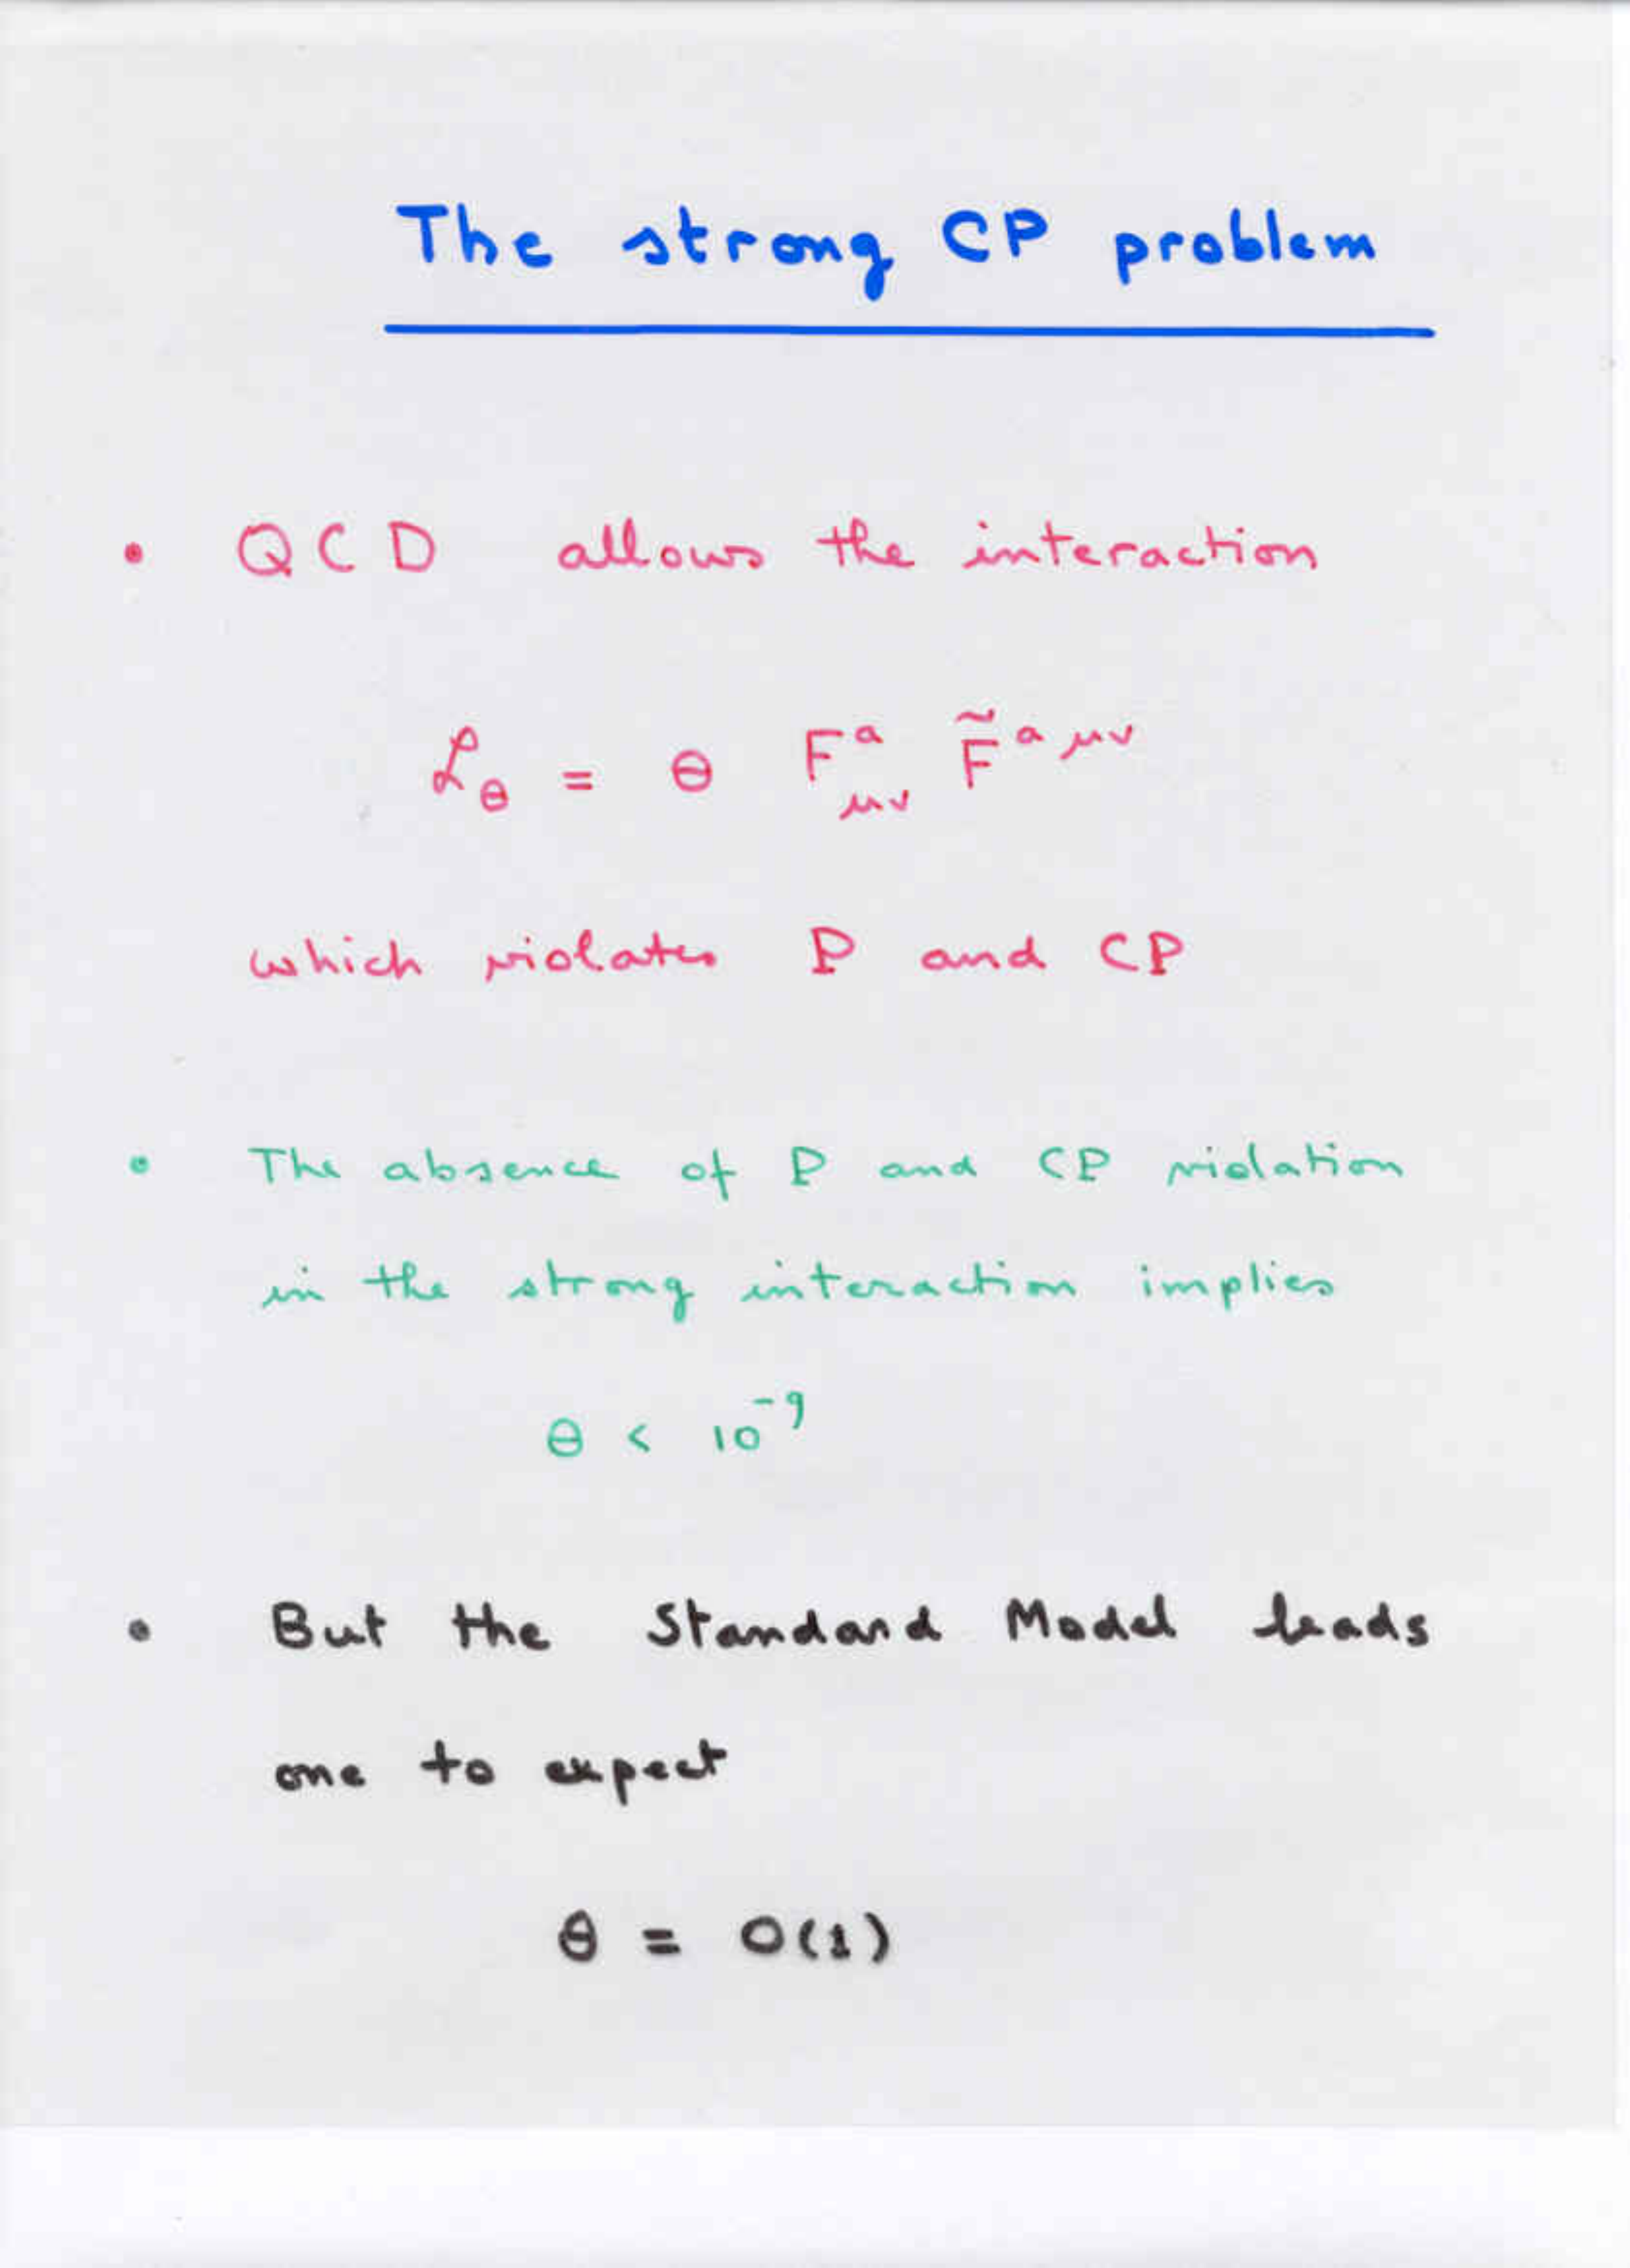 The strong CP problem
• QCD allows the interaction
ℒ_θ = θ F^a_μν F̃^a μν
which violates P and CP
• The absence of P and CP violation
in the strong interaction implies
θ < 10^-9
• But the Standard Model leads
one to expect
θ = O(1)